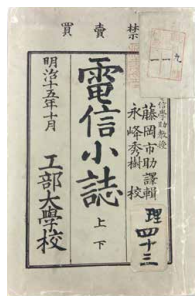 禁賣買
電信學助教授
藤岡市助譯輯
永峰秀樹 校
電信小誌 上下
明治十五年十月
工部大學校
理
四十三
一一
九